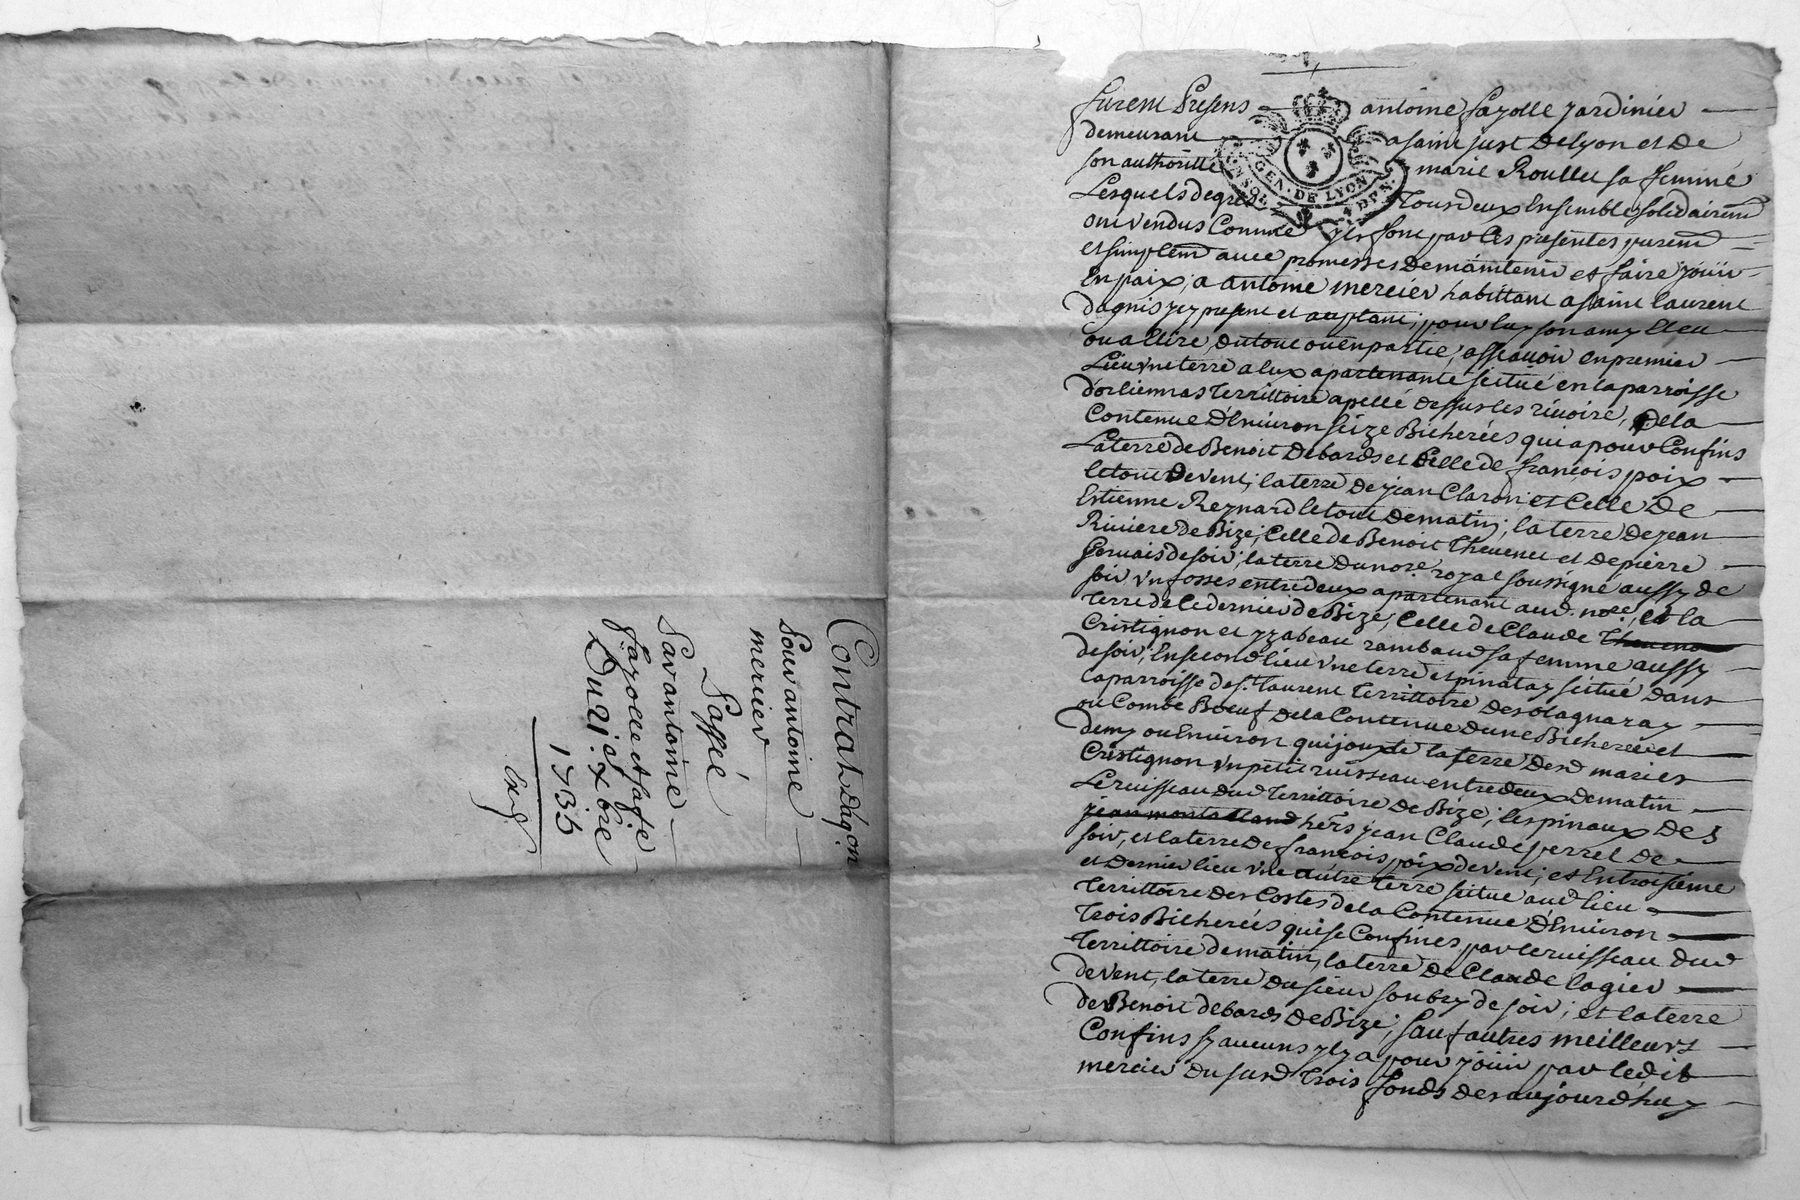 Contrat daqon
pour antoine
mercier
Passée
par antoine
fayolle et sa fe
Du 21e. xbre
1735
Exg
furent Presens antoine fayolle jardinier
demeurant a saint just de lyon et de
son authorité marie Roullet sa femme
Lesquels de gres Tous deux Ensemble solidairemt
ont vendus Comme yls font par les presentes puremt
et simplemt avec promesses de maintenir et faire joüir
En paix, a antoine mercier habittant a saint laurent
dagnis jcy present et aceptant, pour luy son amy Eleu
ou a Elire, du tout ou en partie, assauoir en premier
Lieu vne terre a eux apartenante scitüé en la parroisse
dorliennas Territtoire apellé dessus les riuoire, De la
Contenue D'Enuiron seize Bicherées qui a pour Confins
La terre de Benoit Debards et Celle de françois poix
le tout De vent, la terre de jean Claron et Celle De
Estienne Reynard le tout de matin, la terre de jean
Riuiere de Bize, Celle de Benoit Theuenet et de pierre
Geruais de soir, la terre du nore. royal soussigné aussy de
soir vn fosses entre deux apartenant aud. nore., et la
terre de Ce dernier de Bize, Celle de Claude Theueno
Cristignon et yzabeau rambaud sa femme aussy
de soir, En second lieu vne terre espinatay scitüé dans
la parroisse de st. laurent Territtoire des olagnaray
ou Combe Boeuf de la Contenue dune Bicherée et
demy ou Enuiron qui jouxte la terre desd maries
Cristignon vn petit ruisseau entre deux de matin
Le ruisseau dud Territtoire de Bize, les pinaux des
jean montalland hers jean Claude perrel de
soir, et la terre de françois poix de vent, et En troisieme
et Dernier lieu vne autre terre scitue aud lieu
Territtoire des Costes de la Contenue D'Enuiron
Trois Bicherées qui se Confines par le ruisseau dud
Territtoire de matin, la terre De Claude lagier
de vent, la terre du sieur soubry de soir, et la terre
de Benoit debards de Bize, sauf autres meilleurs
Confins sy aucuns yl y a pour joüir par ledit
mercier Du susd Trois fonds des aujourdhuy
GEN. DE LYON